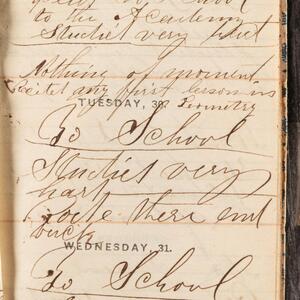 to the Academy
Studies very
Nothing of moment
Recited my first lesson in
TUESDAY, 30.
Geometry
To School
Studies very
hard
Rode there and
back
WEDNESDAY, 31.
To School